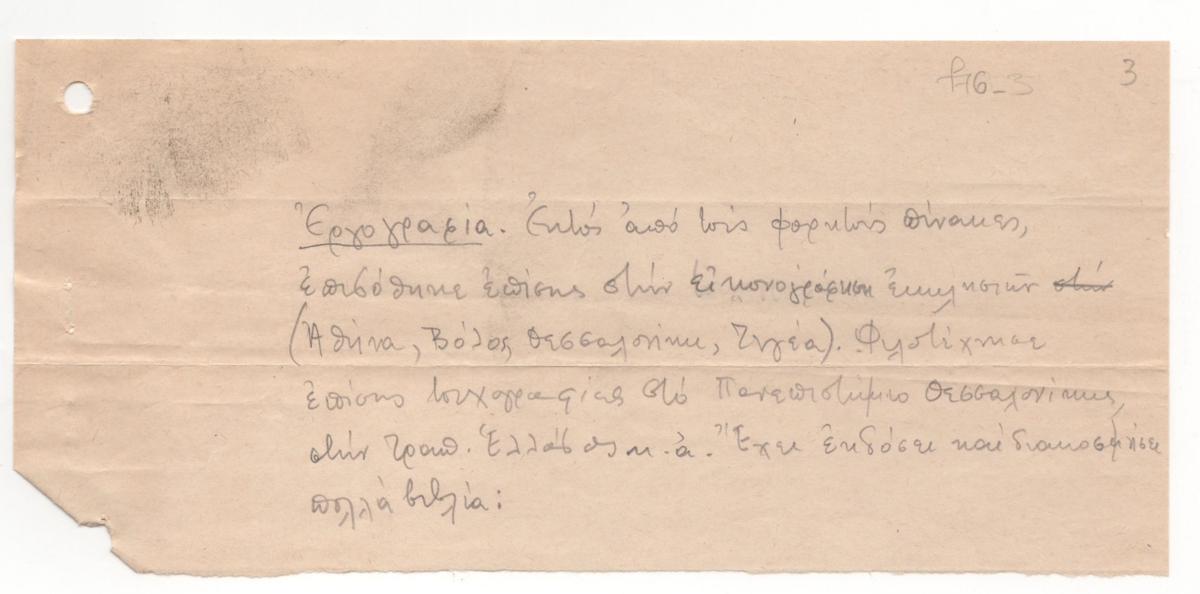 f16-3 3
Ἐργογραφία. Ἐκτός ἀπό τούς φορητούς πίνακες,
ἐπεδόθηκε ἐπίσης στήν εἰκονογράφηση ἐκκλησιῶν στήν
(Ἀθήνα, Βόλος, Θεσσαλονίκη, Τεγέα). Φιλοτέχνησε
ἐπίσης τοιχογραφίες στό Πανεπιστήμιο Θεσσαλονίκης,
στήν Τραπ. Ἑλλάδος κ.ἀ. Ἔχει ἐκδόσει καί διακοσμήσει
πολλά βιβλία: